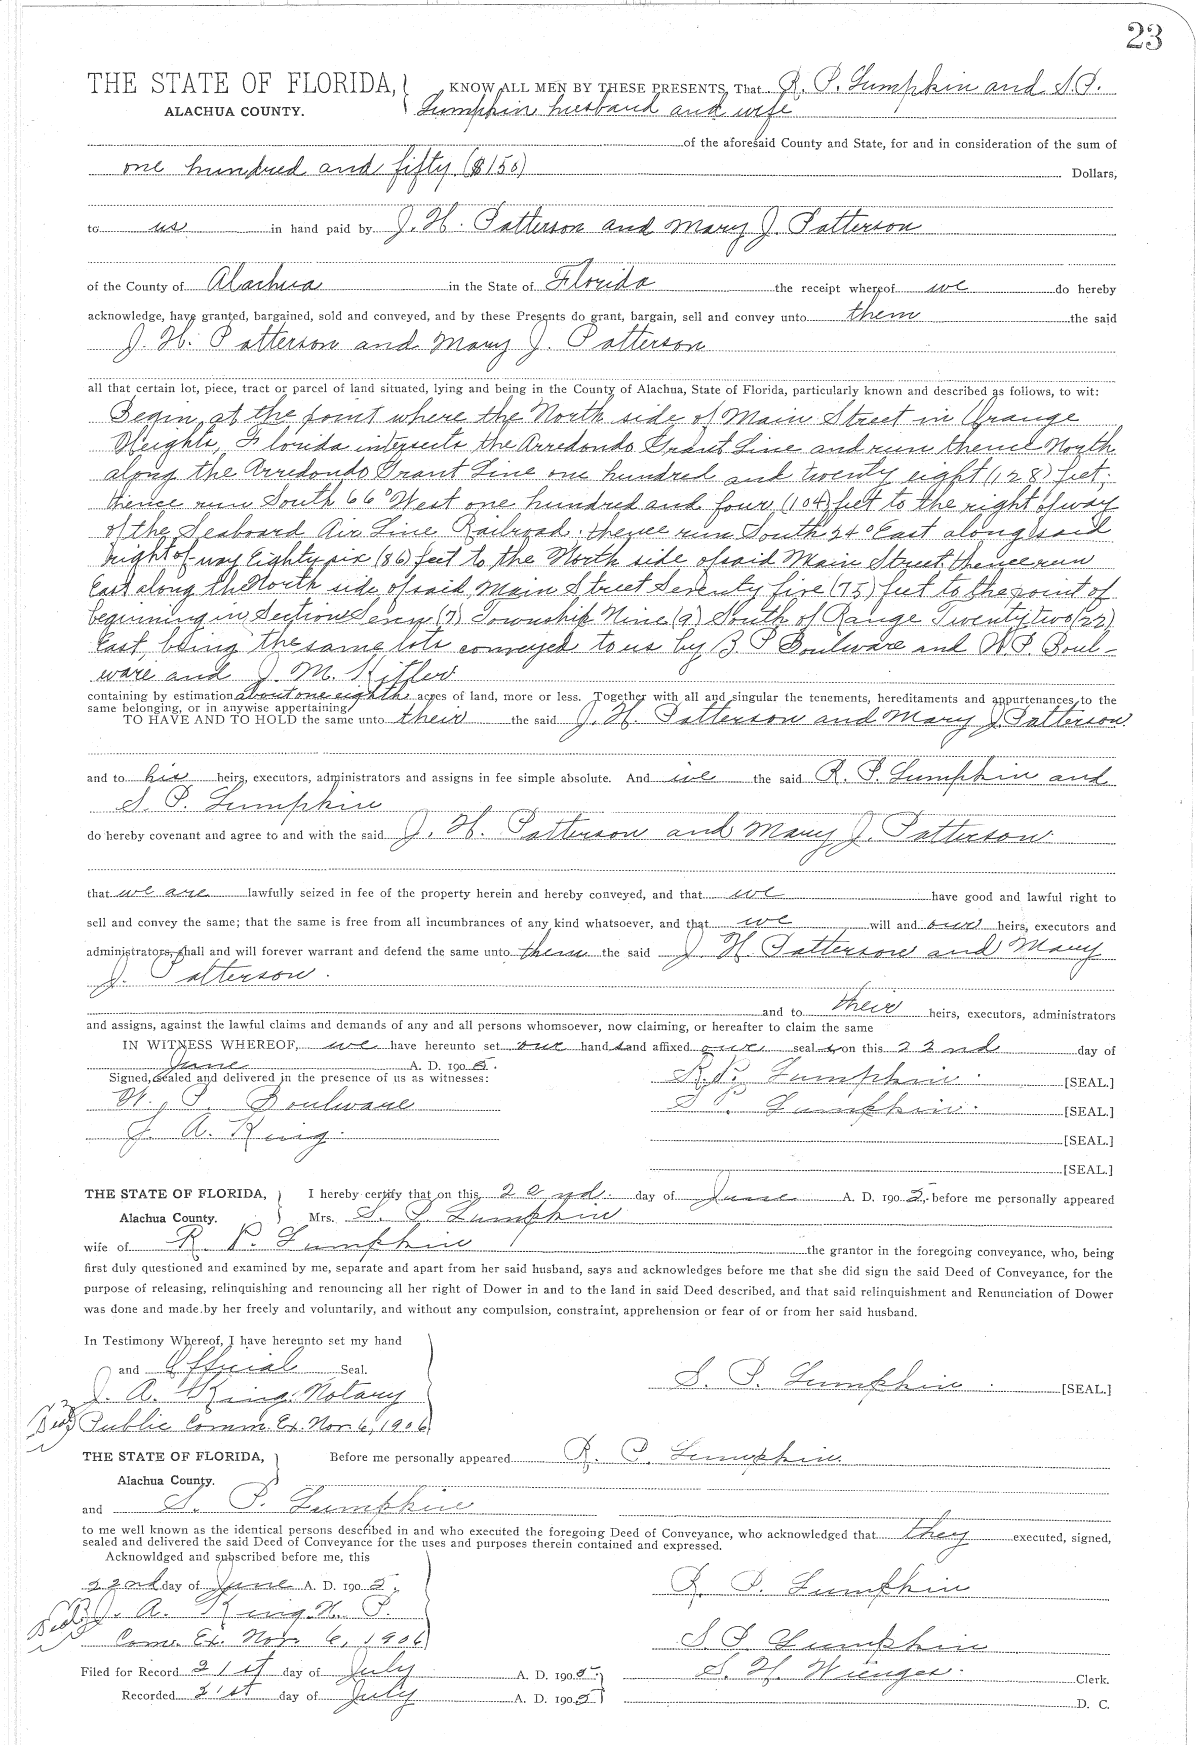 23
THE STATE OF FLORIDA, KNOW ALL MEN BY THESE PRESENTS, That R. P. Lumpkin and S. P.
ALACHUA COUNTY. Lumpkin husband and wife
of the aforesaid County and State, for and in consideration of the sum of
one hundred and fifty ($150) Dollars,
to us in hand paid by J. H. Patterson and Mary J. Patterson
of the County of Alachua in the State of Florida the receipt whereof we do hereby
acknowledge, have granted, bargained, sold and conveyed, and by these Presents do grant, bargain, sell and convey unto them the said
J. H. Patterson and Mary J. Patterson
all that certain lot, piece, tract or parcel of land situated, lying and being in the County of Alachua, State of Florida, particularly known and described as follows, to wit:
Begin at the point where the North side of Main Street in Orange
Heights, Florida intersects the Arredondo Grant Line and run thence North
along the Arredondo Grant Line one hundred and twenty eight (128) feet;
thence run South 66° West one hundred and four (104) feet to the right of way
of the Seaboard Air Line Railroad; thence run South 24° East along said
right of way Eighty six (86) feet to the North side of said Main Street, thence run
East along the North side of said Main Street Seventy five (75) feet to the point of
beginning in Section Seven (7) Township Nine (9) South of Range Twenty two (22)
East, being the same lots conveyed to us by B P Boulware and W. P. Boul-
ware and J. M.
containing by estimation about one eighth acres of land, more or less. Together with all and singular the tenements, hereditaments and appurtenances to the
same belonging, or in anywise appertaining
TO HAVE AND TO HOLD the same unto their the said J. H. Patterson and Mary J. Patterson
and to his heirs, executors, administrators and assigns in fee simple absolute. And we the said R. P. Lumpkin and
S. P. Lumpkin
do hereby covenant and agree to and with the said J. H. Patterson and Mary J. Patterson
that we are lawfully seized in fee of the property herein and hereby conveyed, and that we have good and lawful right to
sell and convey the same; that the same is free from all incumbrances of any kind whatsoever, and that we will and our heirs, executors and
administrators, shall and will forever warrant and defend the same unto them the said J. H. Patterson and Mary
J. Patterson.
and to their heirs, executors, administrators
and assigns, against the lawful claims and demands of any and all persons whomsoever, now claiming, or hereafter to claim the same
IN WITNESS WHEREOF, we have hereunto set our hand s and affixed our seal s on this 22nd day of
June A. D. 1905.
Signed, sealed and delivered in the presence of us as witnesses: R. P. Lumpkin. [SEAL.]
W. P. Boulware S. P. Lumpkin. [SEAL.]
J. A. King. [SEAL.]
[SEAL.]
THE STATE OF FLORIDA, I hereby certify that on this 22nd. day of June A. D. 1905. before me personally appeared
Alachua County. Mrs. S. P. Lumpkin
wife of R. P. Lumpkin the grantor in the foregoing conveyance, who, being
first duly questioned and examined by me, separate and apart from her said husband, says and acknowledges before me that she did sign the said Deed of Conveyance, for the
purpose of releasing, relinquishing and renouncing all her right of Dower in and to the land in said Deed described, and that said relinquishment and Renunciation of Dower
was done and made by her freely and voluntarily, and without any compulsion, constraint, apprehension or fear of or from her said husband.
In Testimony Whereof, I have hereunto set my hand
and Official Seal. S. P. Lumpkin. [SEAL.]
J. A. King. Notary
Seal Public Comm. Ex. Nov. 6, 1906
THE STATE OF FLORIDA, Before me personally appeared R. P. Lumpkin
Alachua County.
and S. P. Lumpkin
to me well known as the identical persons described in and who executed the foregoing Deed of Conveyance, who acknowledged that they executed, signed,
sealed and delivered the said Deed of Conveyance for the uses and purposes therein contained and expressed.
Acknowldged and subscribed before me, this
22nd day of June A. D. 1905. R. P. Lumpkin
Seal J. A. King. N. P.
Com. Ex. Nov. 6, 1906 S P Lumpkin
Filed for Record 21st day of July A. D. 1905. S. H. Wienges. Clerk.
Recorded 21st day of July A. D. 1905 D. C.